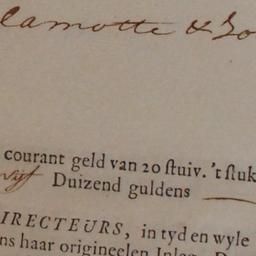 lamotte & Zo
courant geld van 20 ſtuiv. 't ſtuk
vijf Duizend guldens
IRECTEURS, in tyd en wyle
ns haar origineelen Inleg